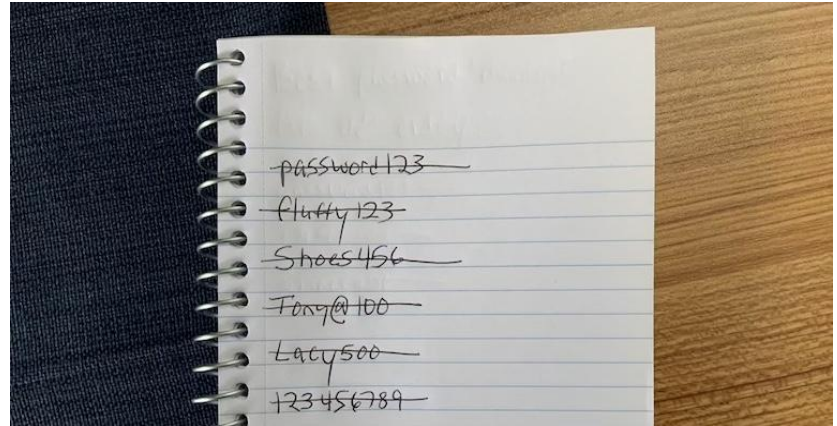 password123
fluffy123
Shoes456
Tony@100
Lacy500
123456789